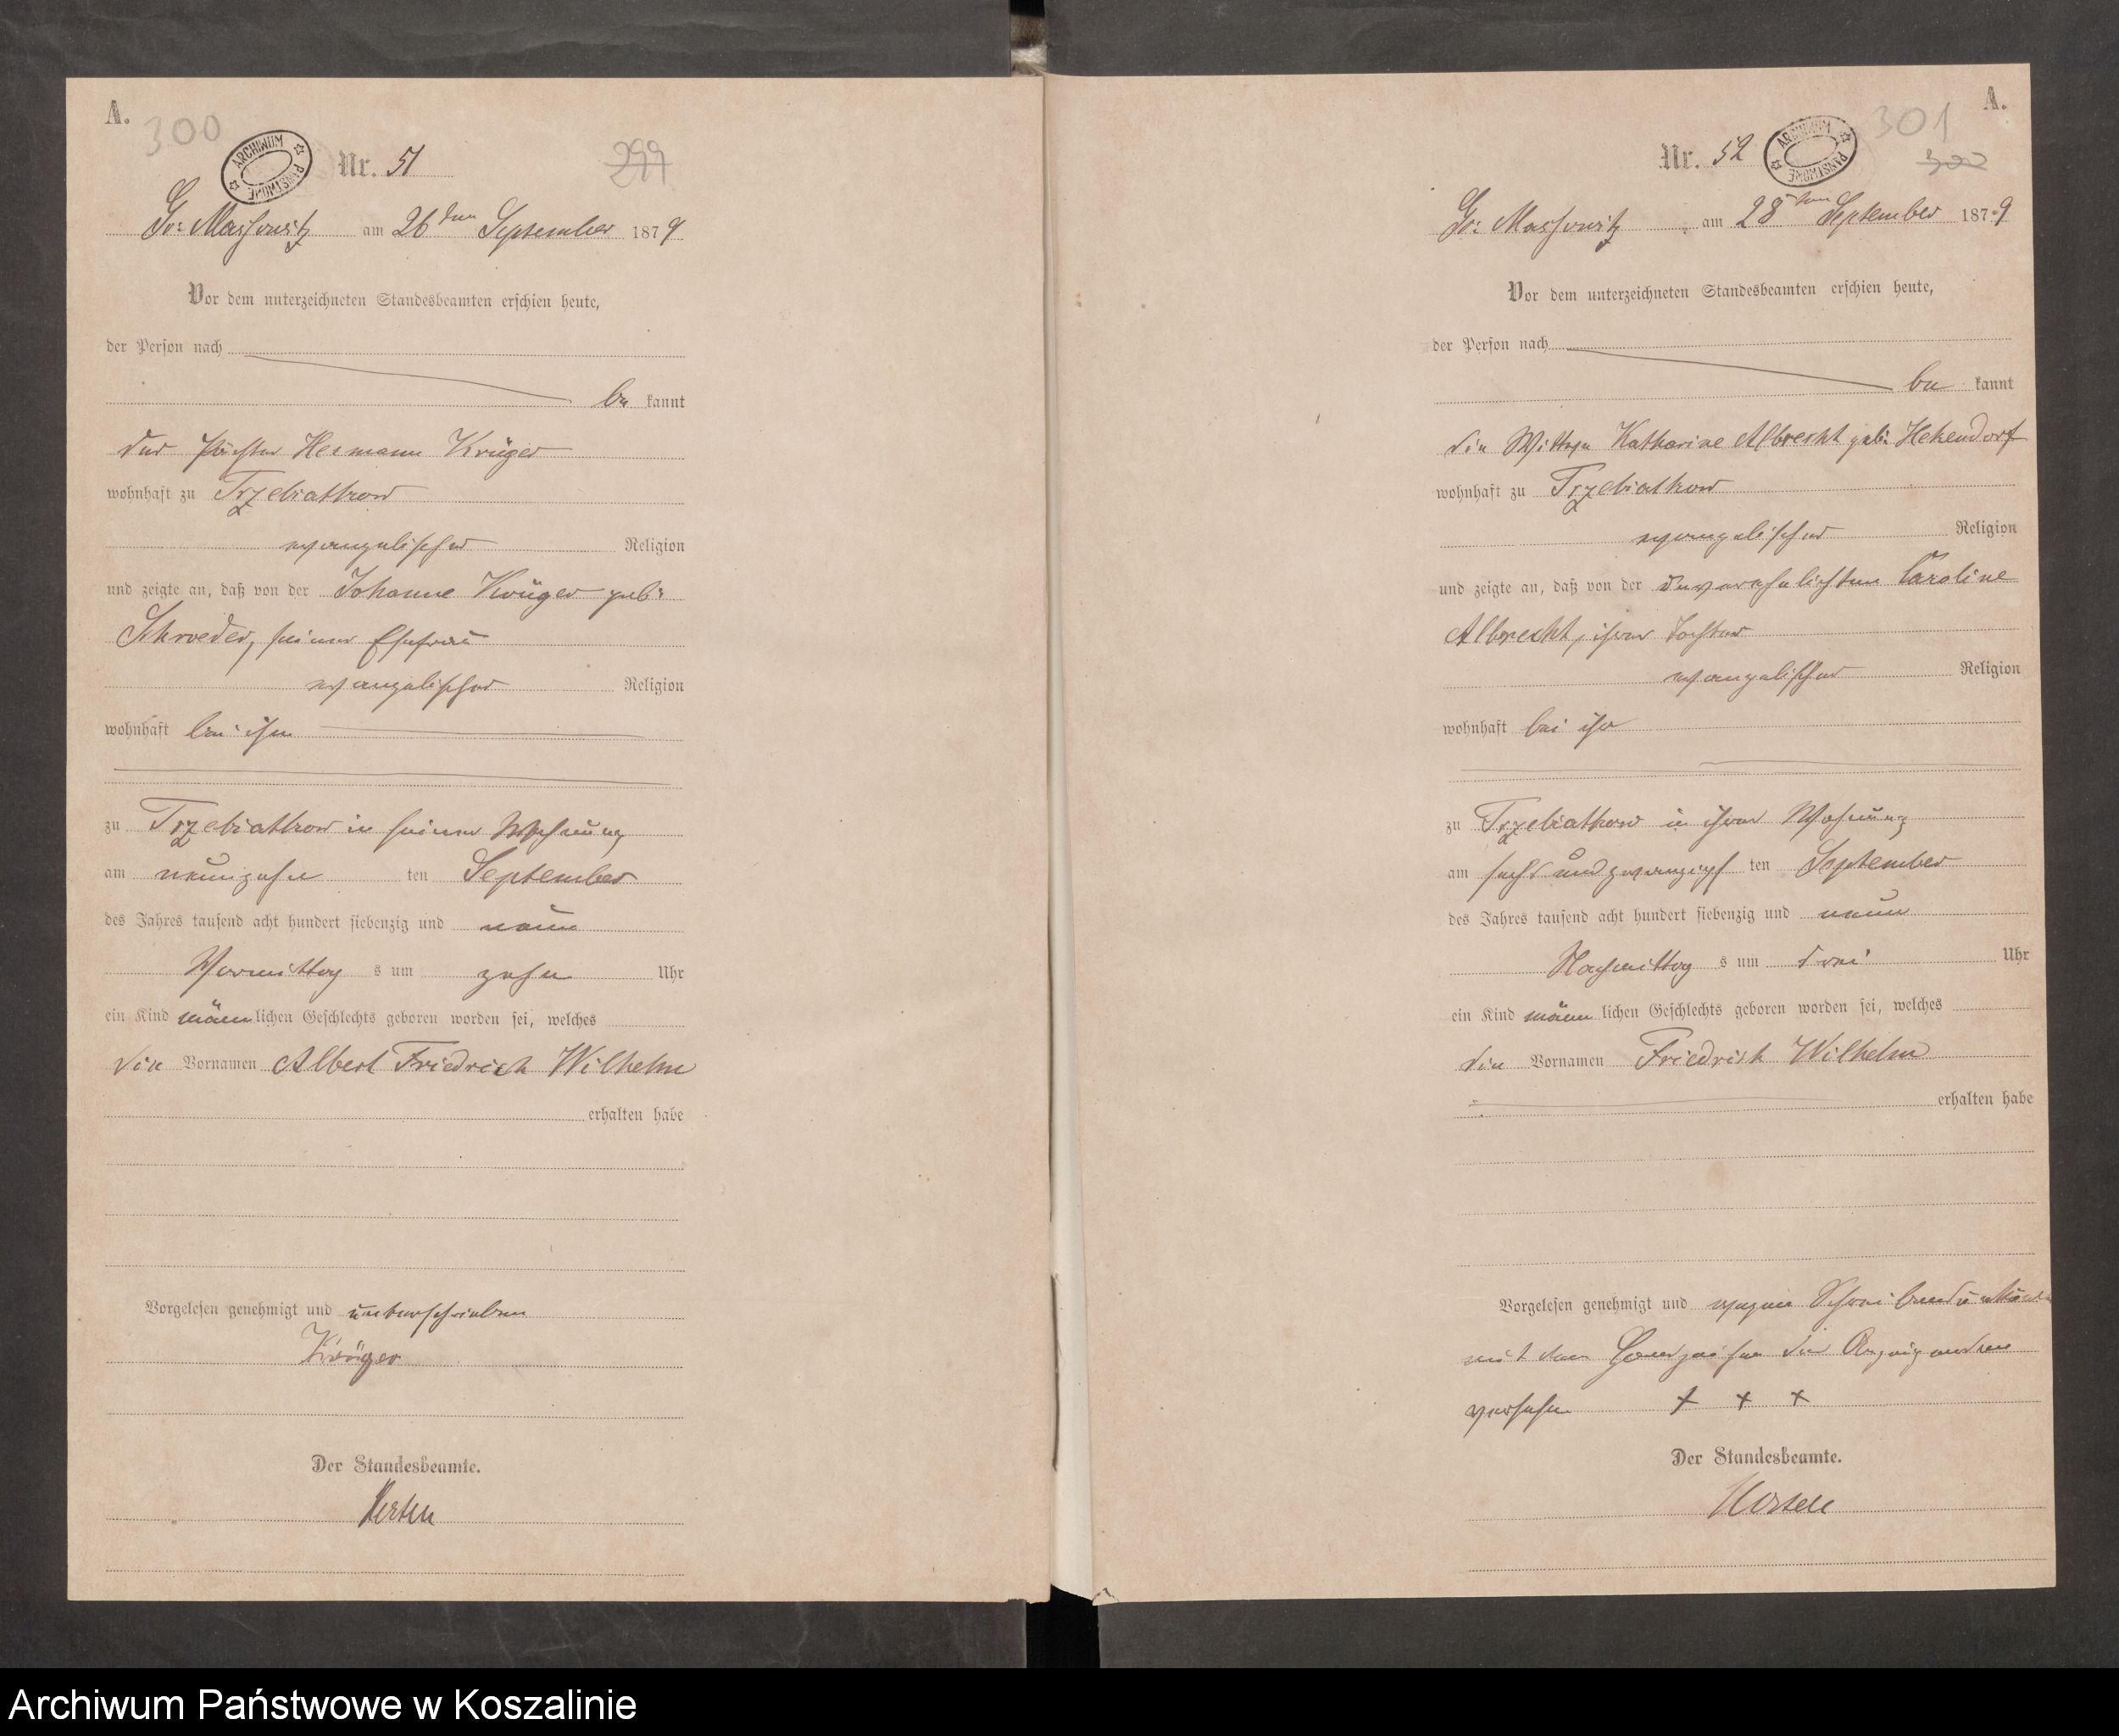 A.
300
ARCHIWUM PAŃSTWOWE
Nr. 51
299
Gr: Massowitz am 26ten September 1879
Vor dem unterzeichneten Standesbeamten erschien heute,
der Person nach
be kannt
der Pächter Hermann Krüger
wohnhaft zu Trzebiatkow
evangelischer Religion
und zeigte an, daß von der Johanne Krüger geb:
Schroeder, seiner Ehefrau
evangelischer Religion
wohnhaft bei ihm
zu Trzebiatkow in seiner Wohnung
am neunzehn ten September
des Jahres tausend acht hundert siebenzig und neun
Vormittag s um zehn Uhr
ein Kind männlichen Geschlechts geboren worden sei, welches
die Vornamen Albert Friedrich Wilhelm
erhalten habe
Vorgelesen genehmigt und unterschrieben
Krüger
Der Standesbeamte.
A.
301
Nr. 52
ARCHIWUM PAŃSTWOWE
300
Gr: Massowitz am 28ten September 1879
Vor dem unterzeichneten Standesbeamten erschien heute,
der Person nach
be kannt
die Wittwe Katharine Albrecht geb: Hekendorf
wohnhaft zu Trzebiatkow
evangelischer Religion
und zeigte an, daß von der unverehelichten Caroline
Albrecht, ihrer Tochter
evangelischer Religion
wohnhaft bei ihr
zu Trzebiatkow in ihrer Wohnung
am sechs und zwanzigs ten September
des Jahres tausend acht hundert siebenzig und neun
Nachmittag s um drei Uhr
ein Kind männlichen Geschlechts geboren worden sei, welches
die Vornamen Friedrich Wilhelm
erhalten habe
Vorgelesen genehmigt und wegen
mit dem Handzeichen der Anzeigenden
versehen + + +
Der Standesbeamte.
Archiwum Państwowe w Koszalinie